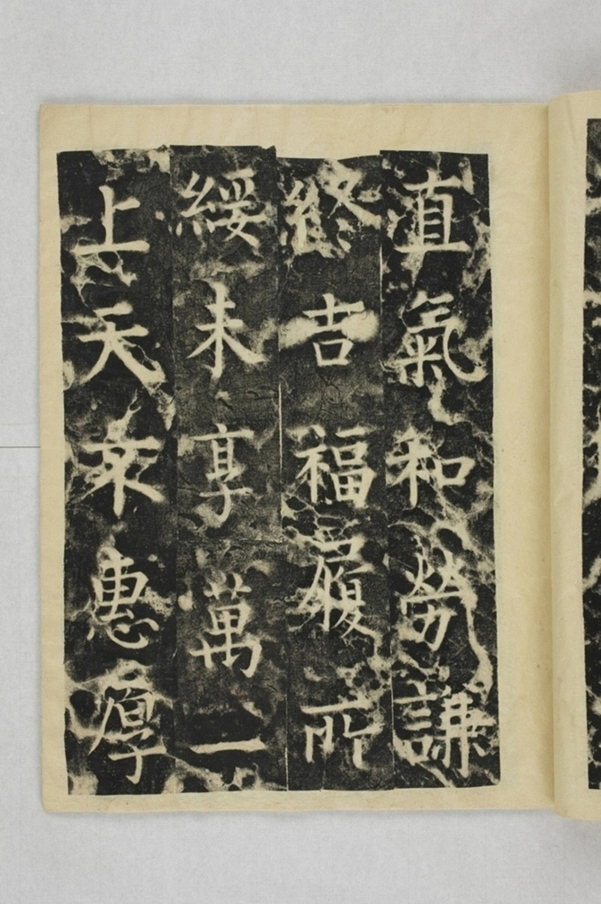 直氣和勞謙
終吉福履所
綏未享萬一
上天不惠厚